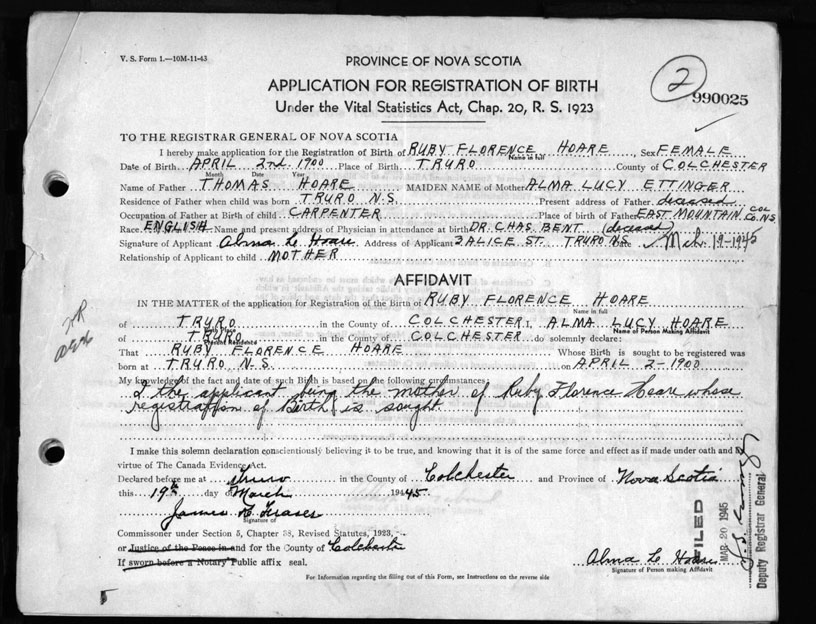 V. S. Form 1.—10M-11-43
PROVINCE OF NOVA SCOTIA
2
990025
APPLICATION FOR REGISTRATION OF BIRTH
Under the Vital Statistics Act, Chap. 20, R. S. 1923
TO THE REGISTRAR GENERAL OF NOVA SCOTIA
I hereby make application for the Registration of Birth of RUBY FLORENCE HOARE, Sex FEMALE
Name in full
Date of Birth APRIL 2nd. 1900 Place of Birth TRURO County of COLCHESTER
Month Date Year
Name of Father THOMAS HOARE MAIDEN NAME of Mother ALMA LUCY ETTINGER
Residence of Father when child was born TRURO N.S. Present address of Father deceased
Occupation of Father at Birth of child CARPENTER Place of birth of Father EAST MOUNTAIN COL. CO. N.S.
Race ENGLISH Name and present address of Physician in attendance at birth DR. CHAS. BENT (deceased)
Signature of Applicant Alma L. Hoare Address of Applicant 3 ALICE ST. TRURO N.S. Date Mch. 19-1945
Relationship of Applicant to child MOTHER
AFFIDAVIT
IN THE MATTER of the application for Registration of the Birth of RUBY FLORENCE HOARE
Name in full
of TRURO in the County of COLCHESTER I, ALMA LUCY HOARE
Name of Person Making Affidavit
of TRURO in the County of COLCHESTER do solemnly declare:
Present Residence
That RUBY FLORENCE HOARE Whose Birth is sought to be registered was
born at TRURO N.S. on APRIL 2-1900
My knowledge of the fact and date of such Birth is based on the following circumstances:
I the applicant being the mother of Ruby Florence Hoare whose
registration of Birth is sought.
I make this solemn declaration conscientiously believing it to be true, and knowing that it is of the same force and effect as if made under oath and by
virtue of The Canada Evidence Act.
Declared before me at Truro in the County of Colchester and Province of Nova Scotia
this 19th day of March 1945
James Fraser
Signature of
Commissioner under Section 5, Chapter 38, Revised Statutes, 1923,
or Justice of the Peace in and for the County of Colchester
If sworn before a Notary Public affix seal.
Alma L. Hoare
Signature of Person making Affidavit
For Information regarding the filling out of this Form, see Instructions on the reverse side
FILED
MAR 20 1945
Deputy Registrar General